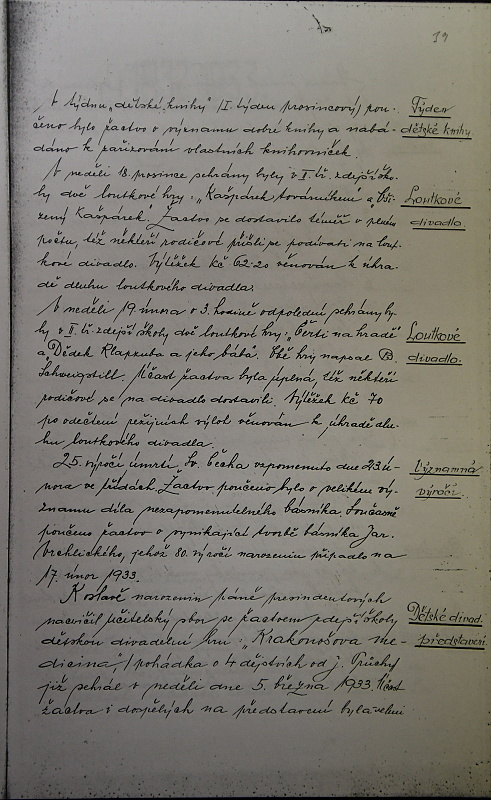 V týdnu „dětské knihy" (I. týden prosincový) pou-
čeno bylo žactvo o významu dobré knihy a nabá-
dáno k zařizování vlastních knihovniček.
Týden
dětské knihy.
V neděli 18. prosince sehrány byly v I. tř. zdejší ško-
ly dvě loutkové hry: „Kašpárek továrníkem" a Vší-
zený Kašpárek. Žactvo se dostavilo téměř v plném
počtu, též někteří rodičové přišli se podívati na lout-
kové divadlo. Výtěžek Kč 62·20 věnován k úhra-
dě dluhu loutkového divadla.
Loutkové
divadlo.
V neděli 19. února o 3. hodině odpolední sehrány by-
ly v II. tř. zdejší školy dvě loutkové hry: „Čerti na hradě"
a „Dědek Klapzuba a jeho bába". Obě hry napsal B.
Schweigstill. Účast žactva byla úplná, též někteří
rodičové se na divadlo dostavili. Výtěžek Kč 70
po odečtení režijních výloh věnován k úhradě dlu-
hu loutkového divadla.
Loutkové
divadlo.
25. výročí úmrtí Sv. Čecha vzpomenuto dne 23. ú-
nora ve třídách. Žactvo poučeno bylo o velikém vý-
znamu díla nezapomenutelného básníka. Současně
poučeno žactvo o vynikající tvorbě básníka Jar.
Vrchlického, jehož 80. výročí narozenin připadlo na
17. únor 1933.
Významná
výročí.
K oslavě narozenin páně presidentových
nacvičil učitelský sbor se žactvem zdejší školy
dětskou divadelní hru: „Krakonošova me-
dicina" (pohádka o 4 dějstvích od J. Průchy)
již sehrál v neděli dne 5. března 1933. Účast
žactva i dospělých na představení byla velmi
Dětské divad.
představení.